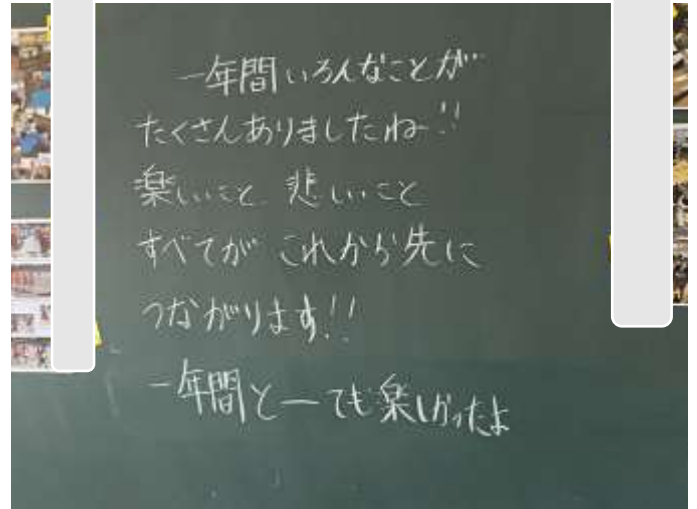 一年間いろんなことが
たくさんありましたねー!!
楽しいこと 悲しいこと
すべてが これから先に
つながります!!
一年間とーても楽しかったよ